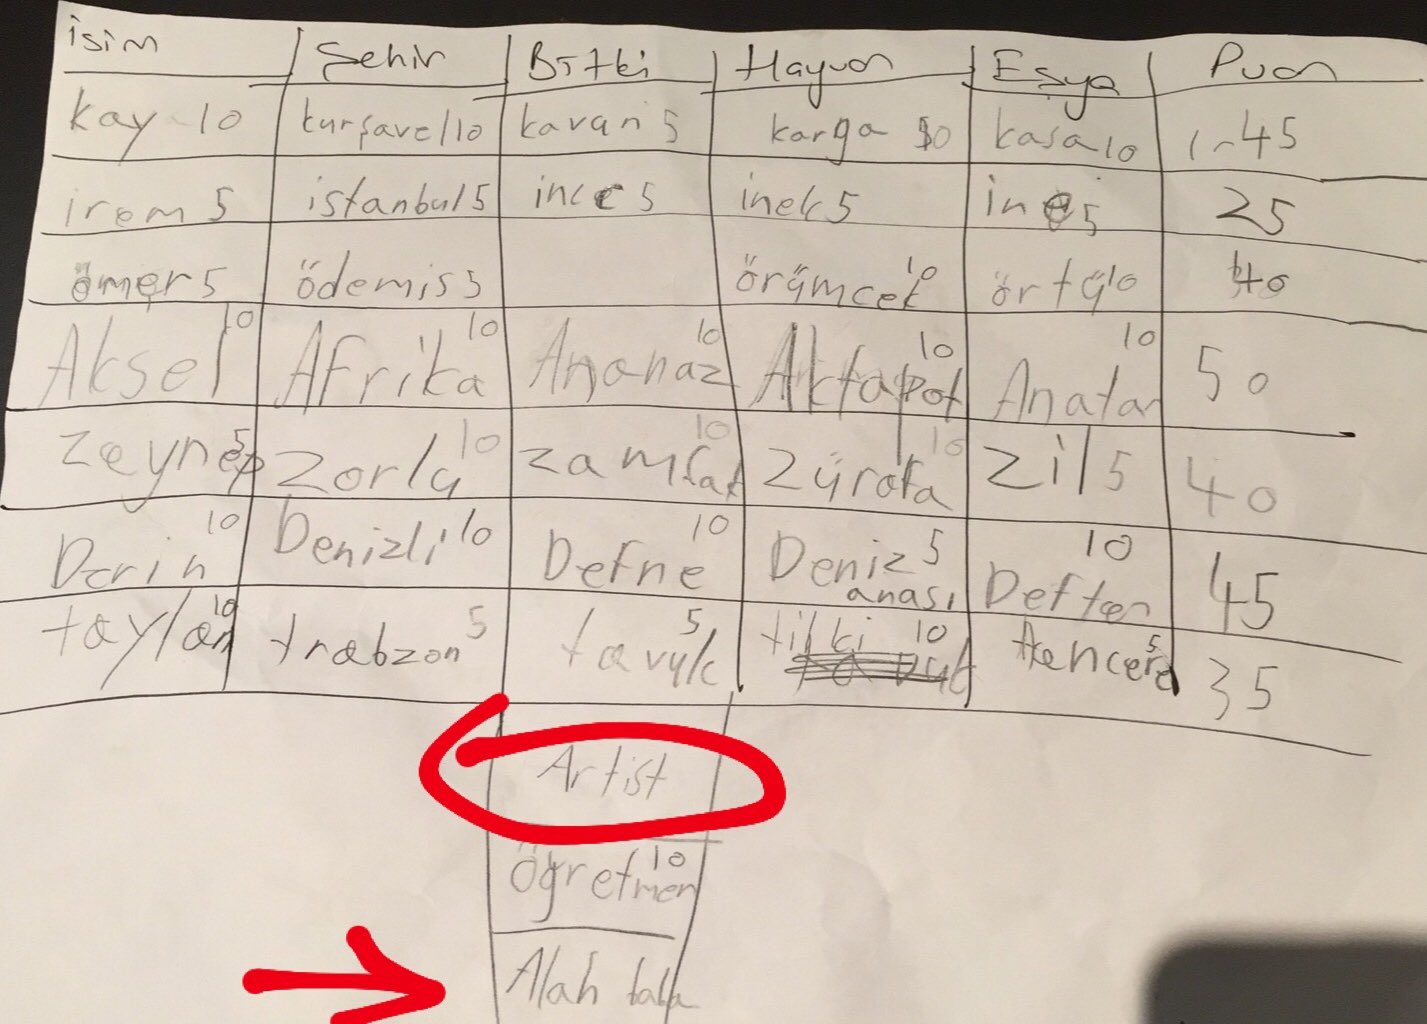 isim Şehir Bitki Hayvan Eşya Puan
kaya 10 kurşavel 10 kavan 5 karga 10 kasa 10 45
irem 5 istanbul 5 ince 5 inek 5 ine 5 25
ömer 5 ödemiş 5 örümcek 10 örtü 10 40
Aksel 10 Afrika 10 Ananaz 10 Aktapot 10 Anatar 10 50
Zeynep 5 Zorlu 10 Zambak 10 Zürafa 10 Zil 5 40
Derin 10 Denizli 10 Defne 10 Deniz anası 5 Defter 10 45
taylan 10 trabzon 5 tavuk 5 tilki 10 tencere 5 35
Artist
Öğretmen 10
Alah